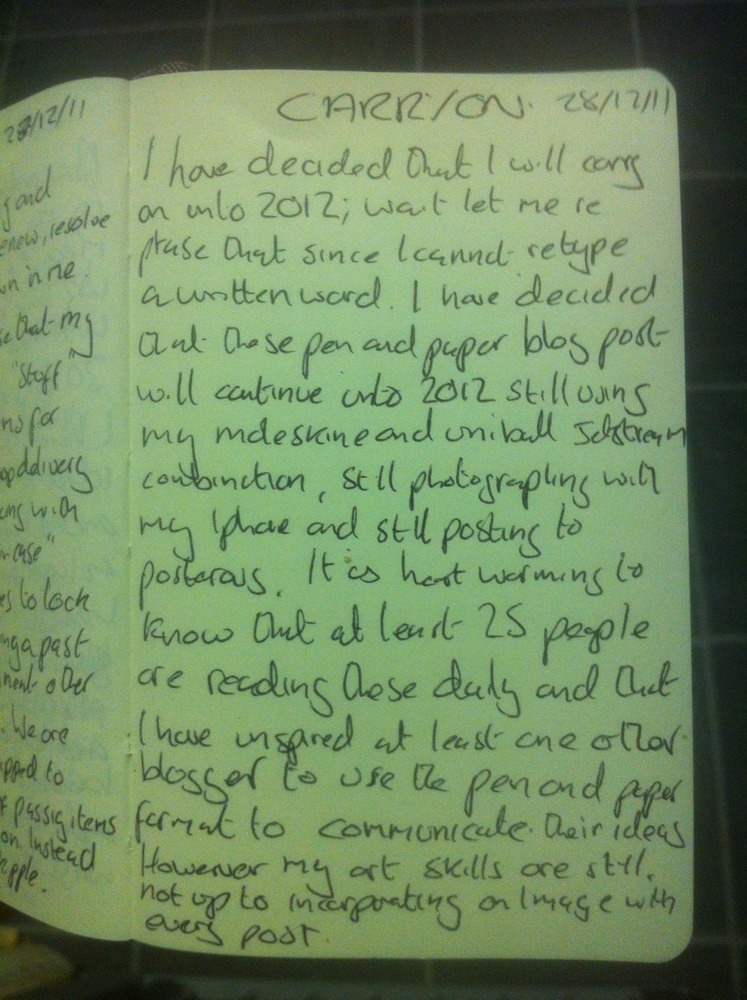 27/12/11
g and
enew, resolve
wn in me.
se that my
"stuff"
ns for
op delivery
ing with
"case"
es to lock
ng a past
ment other
. We are
pped to
f passing items
on. Instead
ripple.
CARRY ON. 28/12/11
I have decided that I will carry
on into 2012; wait let me re
phrase that since I cannot retype
a written word. I have decided
that these pen and paper blog post
will continue into 2012 still using
my moleskine and uniball Jetstream
combination, still photographing with
my Iphone and still posting to
posterous. It is heart warming to
know that at least 25 people
are reading these daily and that
I have inspired at least one other
blogger to use the pen and paper
format to communicate their ideas
However my art skills are still
not up to incorporating an Image with
every post.